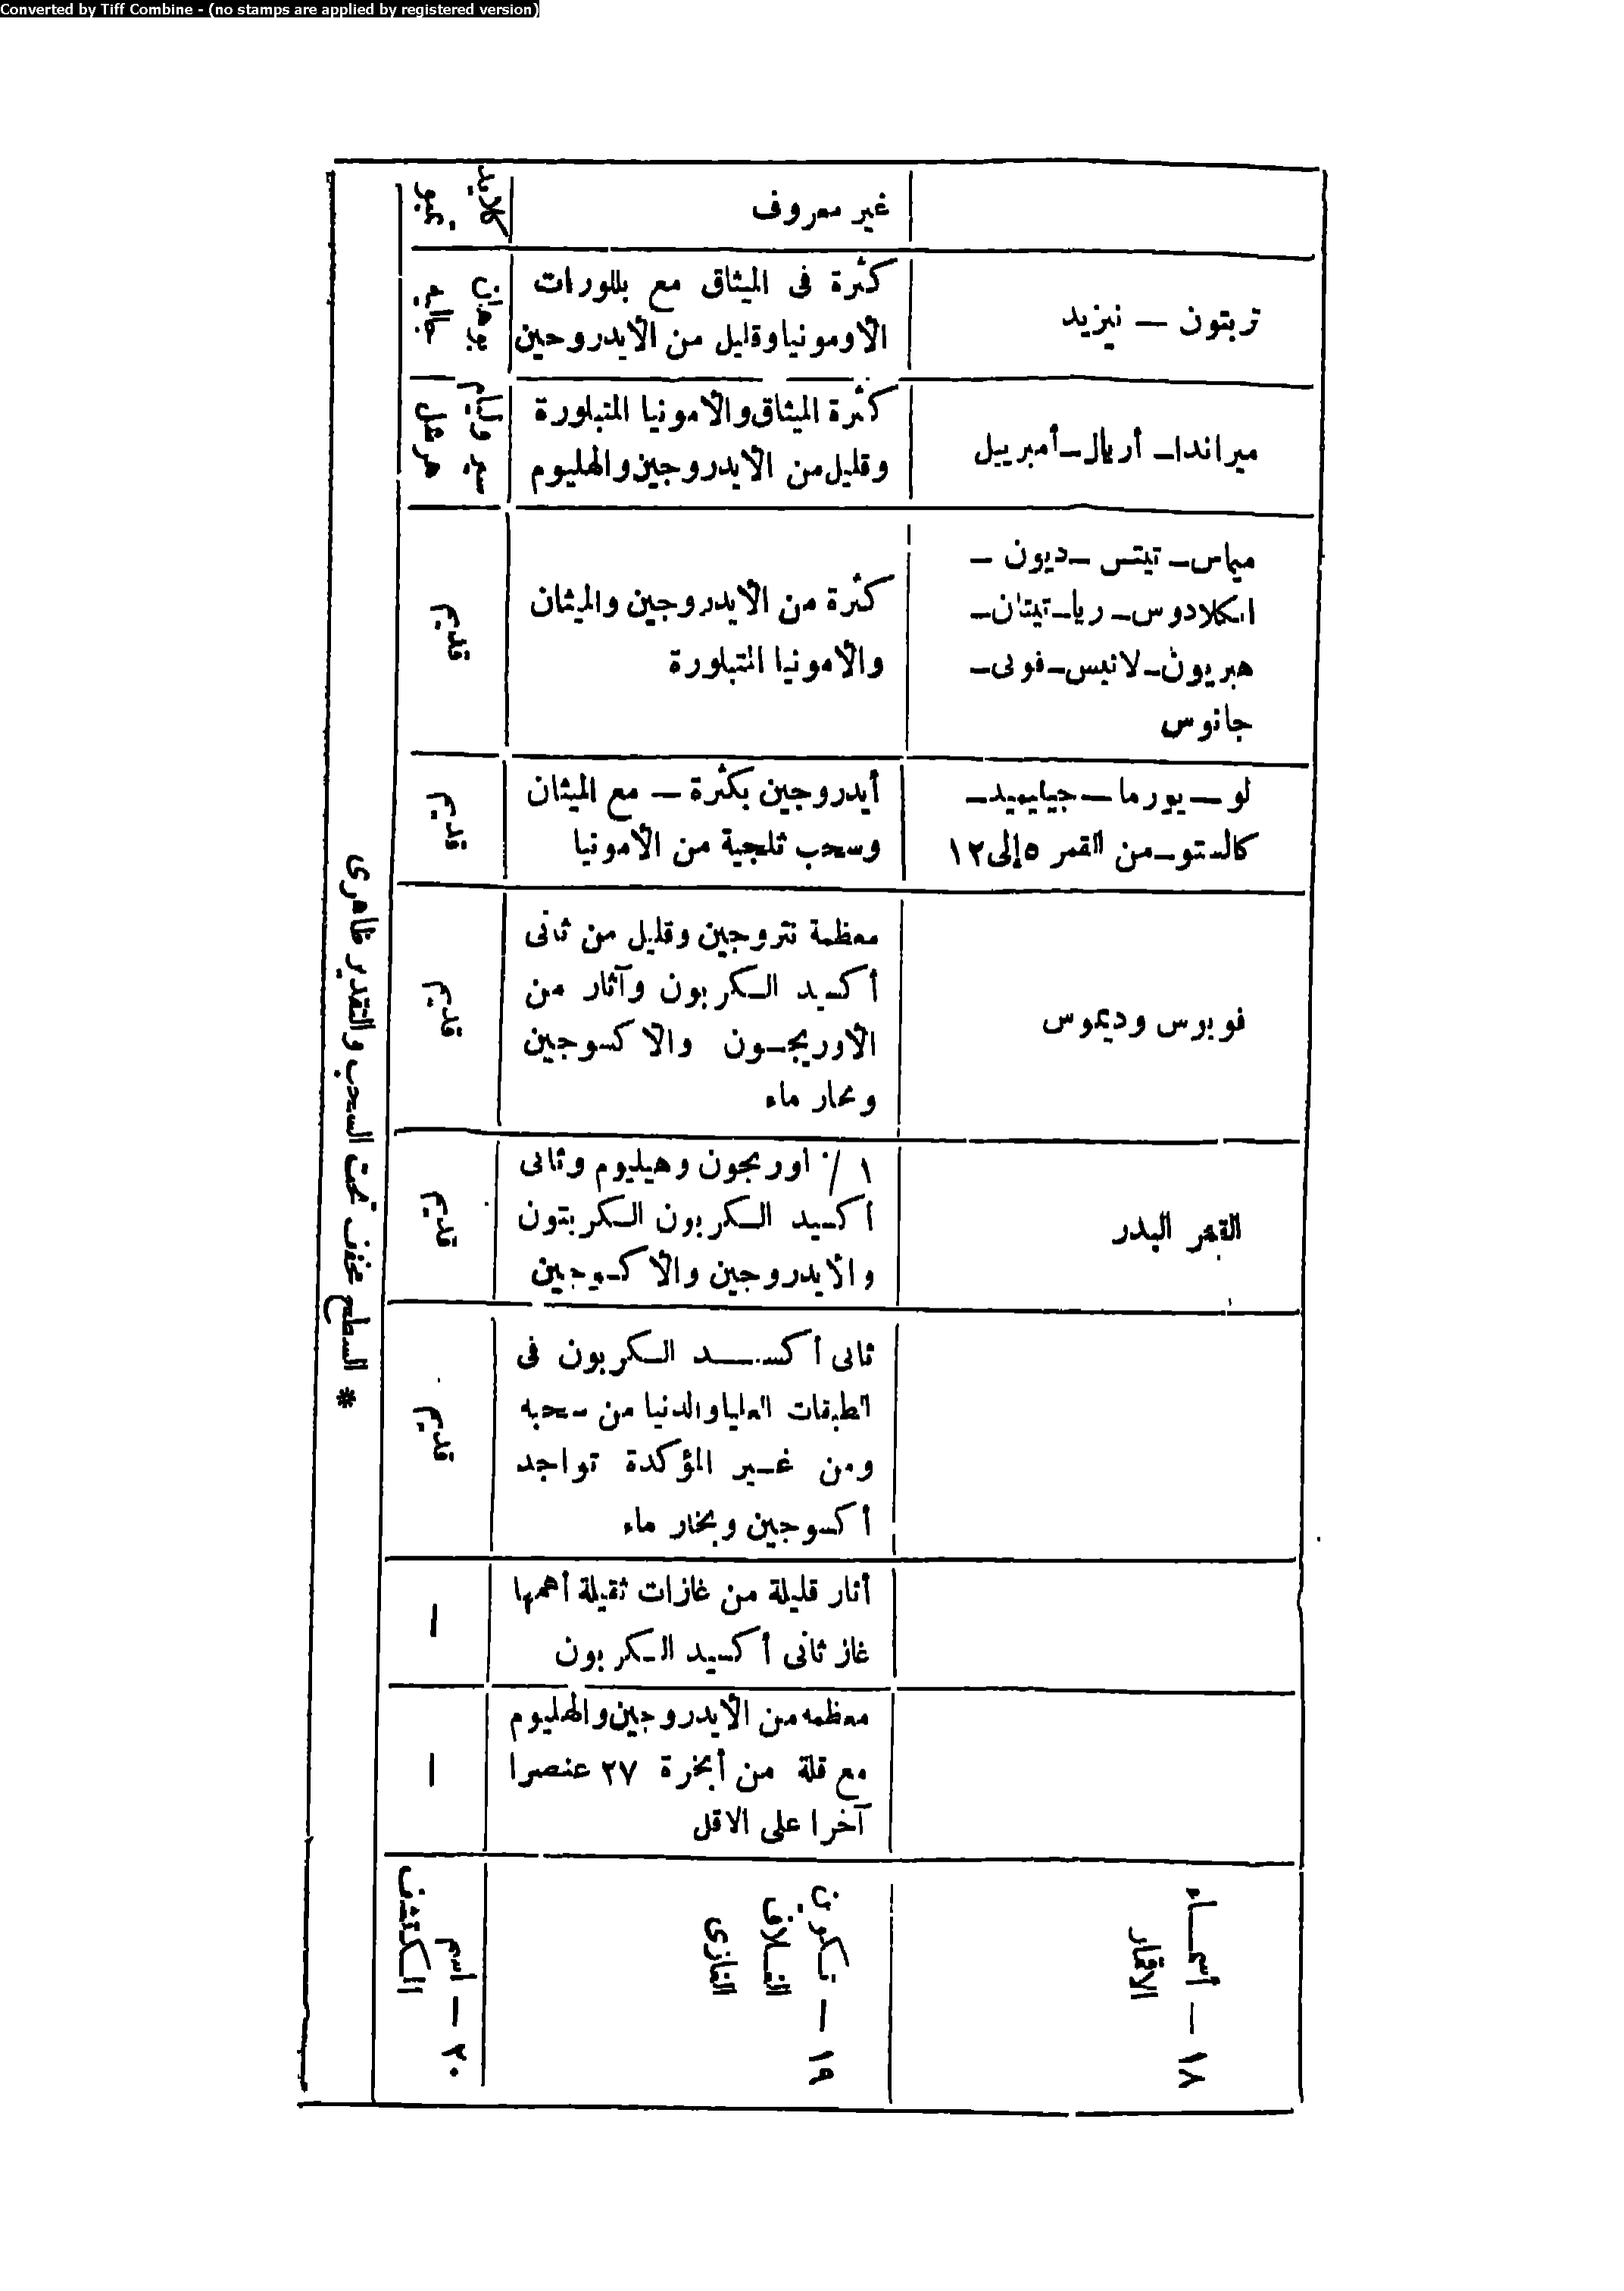 Converted by Tiff Combine - (no stamps are applied by registered version)
غير معروف
كلايد
تمبو
تريتون — نيزيد
كثرة فى الميثاق مع بللورات
الأومونيا وقليل من الأيدروجين
يوهان
جاليه
ميراندا — أريال — أمبرييل
كثرة الميثاق والأمونيا المتبلورة
وقليل من الأيدروجين والهليوم
سير وليام
هرشل
ميماس — تيتس — ديون —
انكلادوس — ريا — تيتان —
هبريون — لانيس — فوبى —
جانوس
كثرة من الأيدروجين والميثان
والأمونيا المتبلورة
قديم
لو — يورما — جيليميد —
كالستو — من القمر ٥ إلى ١٢
أيدروجين بكثرة — مع الميثان
وسحب ثلجية من الأمونيا
قديم
فوبوس وديموس
معظمة نتروجين وقليل من ثانى
أكسيد الكربون وآثار من
الأوريجون والاكسوجين
وبخار ماء
قديم
القمر البدر
١٪ أوريجون وهيليوم وثانى
أكسيد الكربون الكربتون
والأيدروجين والأكسوجين
قديم
ثانى أكسيد الكربون فى
الطبقات العليا والدنيا من سحبه
ومن غير المؤكدة تواجد
أكسوجين وبخار ماء
قديم
أثار قليلة من غازات ثقيلة أهمها
غاز ثانى أكسيد الكربون
—
معظمه من الأيدروجين والهليوم
مع قلة من أبخرة ٢٧ عنصرا
آخرا على الاقل
—
١٨ — أسماء
الاقمار
١٩ — تكوين
الغلاف
الغازى
٢٠ — اسم
المكتشف
* السطح مختف تحت السحب والتقدير ظاهرى